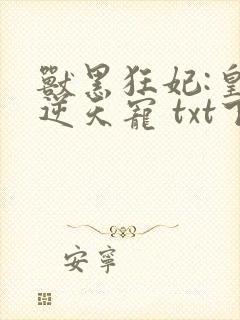 獸黑狂妃:皇
逆天寵 txt下
安寧